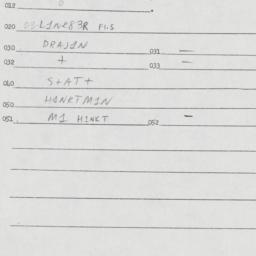 012 0
020 L1NE83R FLS
030 DRAJ1N 031 —
032 + 033 —
040 S+AT+
050 H1NKTM1N
051 M1 H1NKT 052 -